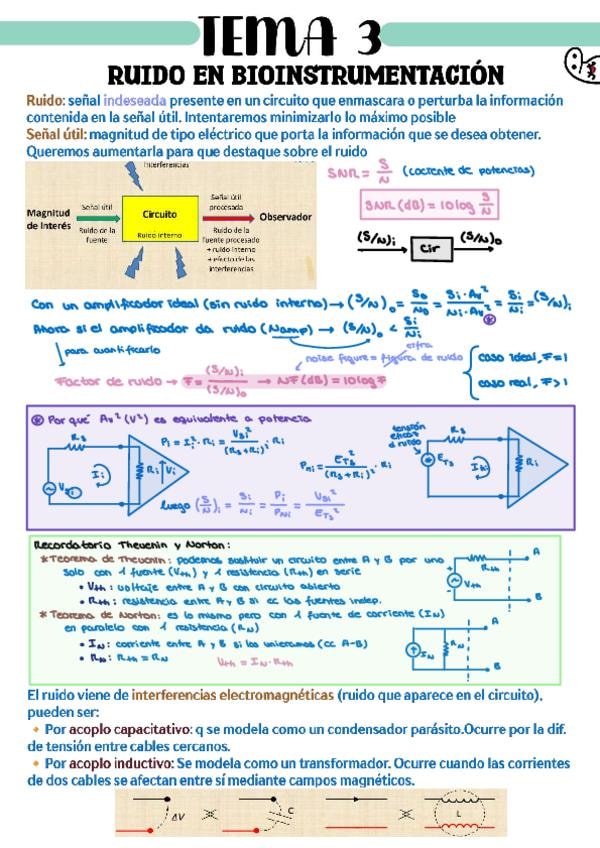 TEMA 3
RUIDO EN BIOINSTRUMENTACIÓN
Ruido: señal indeseada presente en un circuito que enmascara o perturba la información
contenida en la señal útil. Intentaremos minimizarlo lo máximo posible
Señal útil: magnitud de tipo eléctrico que porta la información que se desea obtener.
Queremos aumentarla para que destaque sobre el ruido
Interferencias
Magnitud de interés
Señal útil
Ruido de la fuente
Circuito
Ruido interno
Señal útil procesada
Ruido de la fuente procesado + ruido interno + efecto de las interferencias
Observador
SNR = S/N (cociente de potencias)
SNR (dB) = 10 log S/N
(S/N)i → Cir → (S/N)o
Con un amplificador ideal (sin ruido interno) → (S/N)o = So/No = Si·Av²/Ni·Av² = Si/Ni = (S/N)i
Ahora si el amplificador da ruido (Namp) → (S/N)o < Si/Ni
para cuantificarlo
cifra
noise figure = figura de ruido
Factor de ruido → F = (S/N)i/(S/N)o → NF (dB) = 10 log F
caso ideal, F=1
caso real, F>1
* Por qué Av² (V²) es equivalente a potencia
Rs Vsi Ii Ri Vi
Pi = Ii²·Ri = Vsi²/(Rs+Ri)²·Ri
Pni = ETs²/(Rs+Ri)²·Ri
luego (S/N)i = Si/Ni = Pi/PNi = Vsi²/ETs²
tensión eficaz d ruido
Rs ETs Ri
Recordatorio Thevenin y Norton:
* Teorema de Thevenin: podemos sustituir un circuito entre A y B por uno
solo con 1 fuente (Vth) y 1 resistencia (Rth) en serie
• Vth: voltaje entre A y B con circuito abierto
• Rth: resistencia entre A y B si cc las fuentes indep.
* Teorema de Norton: es lo mismo pero con 1 fuente de corriente (IN)
en paralelo con 1 resistencia (RN)
• IN: corriente entre A y B si los unieramos (cc A-B)
• RN: Rth = RN
Vth = IN·Rth
Rth A
Vth
B
A
IN RN
B
El ruido viene de interferencias electromagnéticas (ruido que aparece en el circuito),
pueden ser:
Por acoplo capacitativo: q se modela como un condensador parásito.Ocurre por la dif.
de tensión entre cables cercanos.
Por acoplo inductivo: Se modela como un transformador. Ocurre cuando las corrientes
de dos cables se afectan entre sí mediante campos magnéticos.
ΔV C L